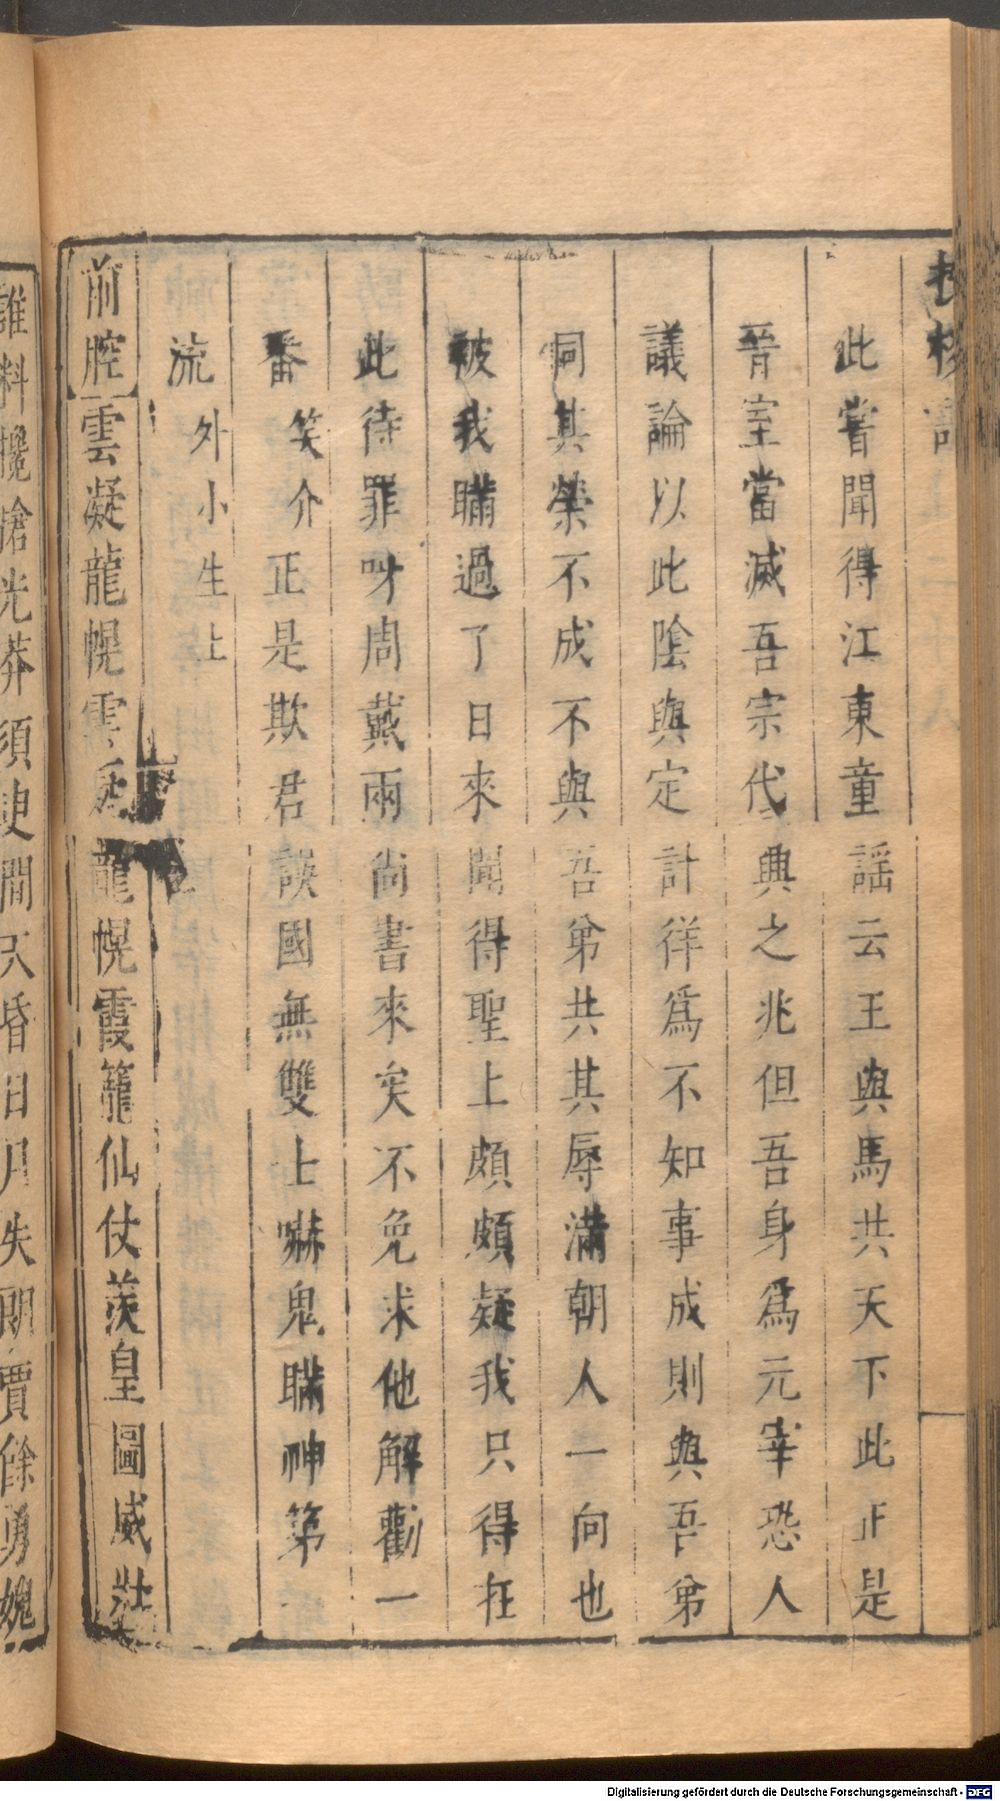 此嘗聞得江東童謡云王與馬共天下此正是
晉室當滅吾宗代興之兆但吾身爲元宰恐人
議論以此陰與定計徉爲不知事成則與吾弟
同其榮不成不與吾弟共其辱滿朝人一向也
被我瞞過了日來聞得聖上頗頗疑我只得在
此待罪呀周戴兩尚書來矣不免求他解勸一
番笑介正是欺君誤國無雙上嚇鬼瞞神第
流外小生上
前腔雲凝龍幌雲龍幌霞籠仙仗羨皇圖威壯
誰料攙搶光莽須使間天昏日月失朗賈餘勇媿
Digitalisierung gefördert durch die Deutsche Forschungsgemeinschaft - DFG